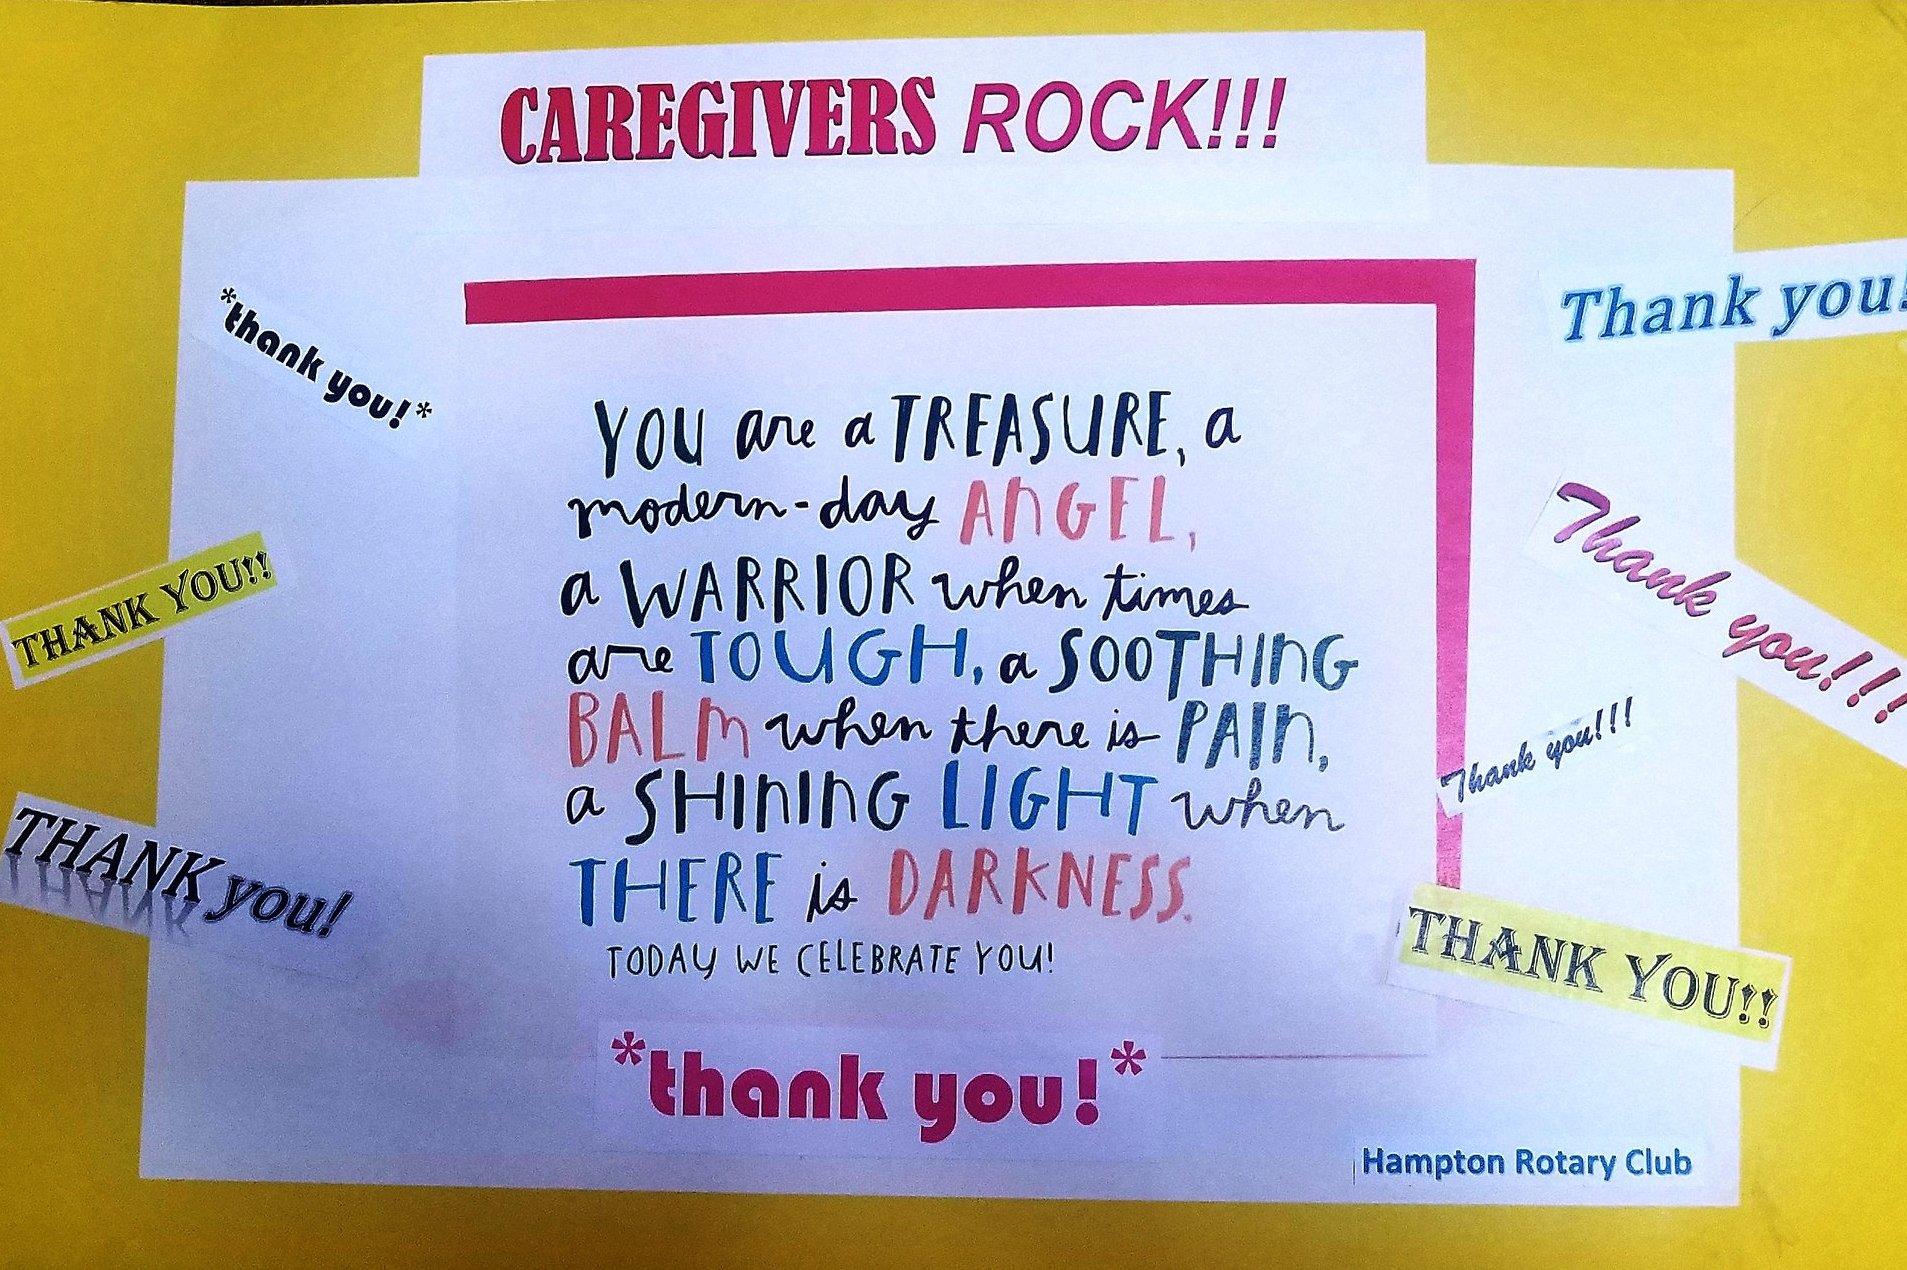 CAREGIVERS ROCK!!!
*thank you!*
Thank you!
YOU are a TREASURE, a
modern-day ANGEL,
a WARRIOR when times
are TOUGH, a SOOTHING
BALM when there is PAIN,
a SHINING LIGHT when
THERE is DARKNESS.
TODAY WE CELEBRATE YOU!
THANK YOU!!
Thank you!!!
Thank you!!!
THANK you!
THANK YOU!!
*thank you!*
Hampton Rotary Club